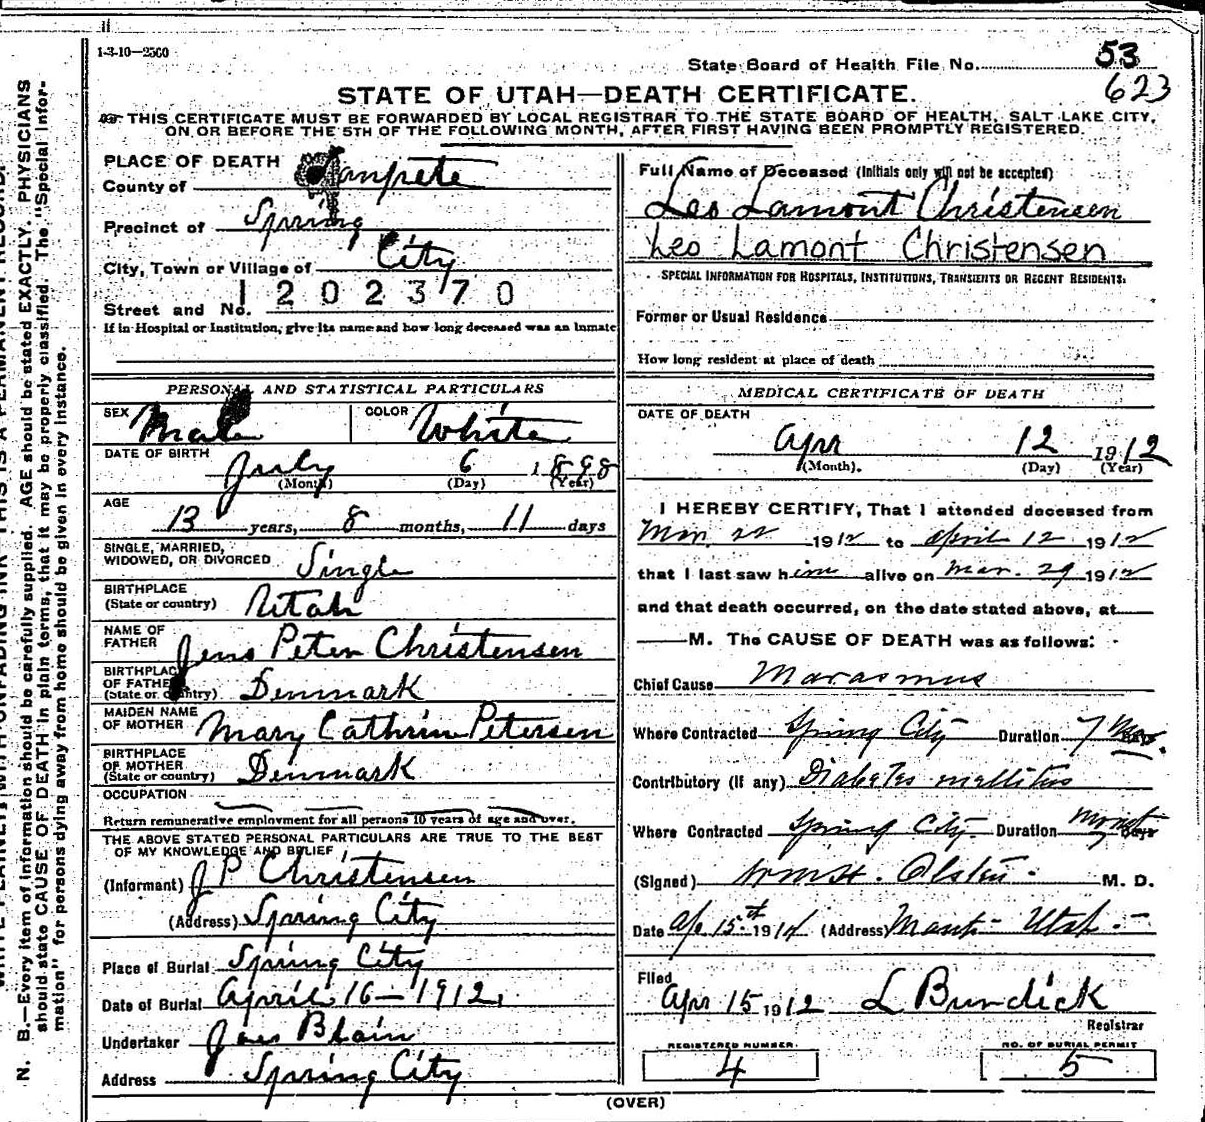 1-3-10—2500
State Board of Health File No. 53
623
STATE OF UTAH—DEATH CERTIFICATE.
THIS CERTIFICATE MUST BE FORWARDED BY LOCAL REGISTRAR TO THE STATE BOARD OF HEALTH, SALT LAKE CITY,
ON OR BEFORE THE 5TH OF THE FOLLOWING MONTH, AFTER FIRST HAVING BEEN PROMPTLY REGISTERED.
PLACE OF DEATH
County of Sanpete
Precinct of Spring
City, Town or Village of City
Street and No. 1202370
If in Hospital or Institution, give its name and how long deceased was an inmate
PERSONAL AND STATISTICAL PARTICULARS
SEX Male COLOR White
DATE OF BIRTH July 6 1898
(Month) (Day) (Year)
AGE
13 years, 8 months, 11 days
SINGLE, MARRIED,
WIDOWED, OR DIVORCED Single
BIRTHPLACE
(State or country) Utah
NAME OF
FATHER Jens Peter Christensen
BIRTHPLACE
OF FATHER
(State or country) Denmark
MAIDEN NAME
OF MOTHER Mary Cathrin Petersen
BIRTHPLACE
OF MOTHER
(State or country) Denmark
OCCUPATION
Return remunerative employment for all persons 10 years of age and over.
THE ABOVE STATED PERSONAL PARTICULARS ARE TRUE TO THE BEST
OF MY KNOWLEDGE AND BELIEF
(Informant) J P Christensen
(Address) Spring City
Place of Burial Spring City
Date of Burial April 16—1912
Undertaker Blain
Address Spring City
Full Name of Deceased (Initials only will not be accepted)
Leo Lamont Christensen
Leo Lamont Christensen
SPECIAL INFORMATION FOR HOSPITALS, INSTITUTIONS, TRANSIENTS OR RECENT RESIDENTS:
Former or Usual Residence
How long resident at place of death
MEDICAL CERTIFICATE OF DEATH
DATE OF DEATH
Apr 12 1912
(Month). (Day) (Year)
I HEREBY CERTIFY, That I attended deceased from
Mar. 22 1912 to April 12 1912
that I last saw him alive on Mar. 29 1912
and that death occurred, on the date stated above, at
M. The CAUSE OF DEATH was as follows:
Chief Cause Marasmus
Where Contracted Spring City Duration 7
Contributory (if any) Diabetes mellitus
Where Contracted Spring City. Duration
(Signed) M. D.
Date 15th 191 (Address) Manti - Utah.
Filed
Apr 15 1912 L Bundick
Registrar
REGISTERED NUMBER
4
NO. OF BURIAL PERMIT
5
(OVER)
N. B.—Every item of information should be carefully supplied. AGE should be stated EXACTLY. PHYSICIANS
should state CAUSE OF DEATH in plain terms, that it may be properly classified. The "Special Infor-
mation" for persons dying away from home should be given in every instance.